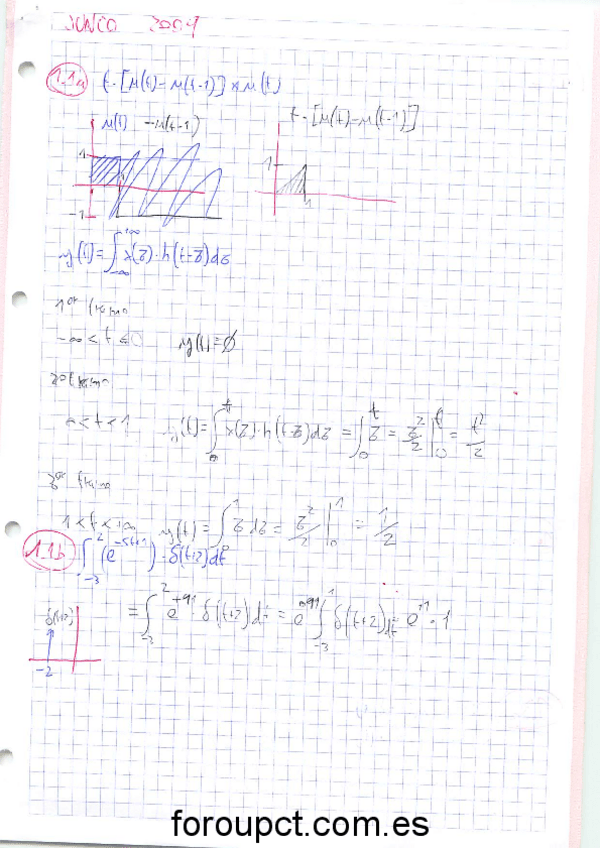 JUNIO 2009
1.1a t·[u(t)-u(t-1)]*u(t)
u(t) -u(t-1)
t·[u(t)-u(t-1)]
1
-1
1
1
y(t)=∫_{-∞}^{+∞} x(z)·h(t-z)dz
1er tramo
-∞<t<0 y(t)=∅
2º tramo
0<t<1 y(t)=∫_0^t x(z)·h(t-z)dz = ∫_0^t z = z²/2 |_0^t = t²/2
3er tramo
1<t<+∞ y(t)=∫_0^1 z dz = z²/2 |_0^1 = 1/2
1.1b ∫_{-3}^2 (e^{-5t+1})·δ(t+2)dt
δ(t+2)
-2
=∫_{-3}^2 e^{+11} δ(t+2)dt = e^{11} ∫_{-3}^1 δ(t+2)dt = e^{11}·1
foroupct.com.es